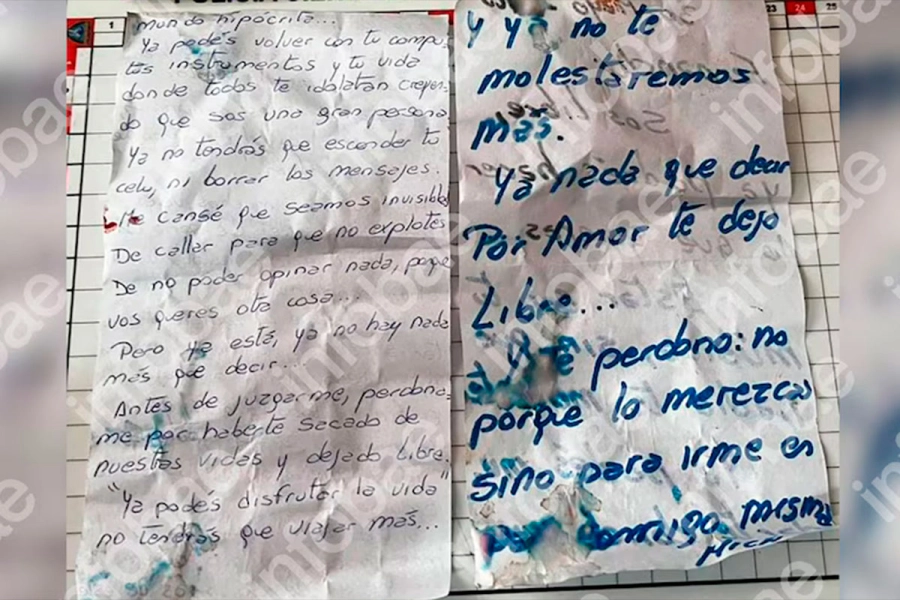 mundo hipócrita...
Ya podés volver con tu compu,
tus instrumentos y tu vida
donde todos te idolatran creyen-
do que sos una gran persona
Ya no tendrás que esconder tu
celu, ni borrar los mensajes.
Me cansé que seamos invisibles
De callar para que no explotes
De no poder opinar nada, porque
vos queres otra cosa...
Pero ya está, ya no hay nada
más que decir...
Antes de juzgarme, perdoná-
me por haberte sacado de
nuestras vidas y dejado libre.
"Ya podés disfrutar la vida"
no tendrás que viajar más...
Y ya no te
molestaremos
más.
Ya nada que decir
Por Amor te dejo
Libre...
perobno: no
porque lo merezcas
sino para irme en
conmigo misma
1
23
24
25
infobae
infobae
infobae
infobae
infobae
infobae